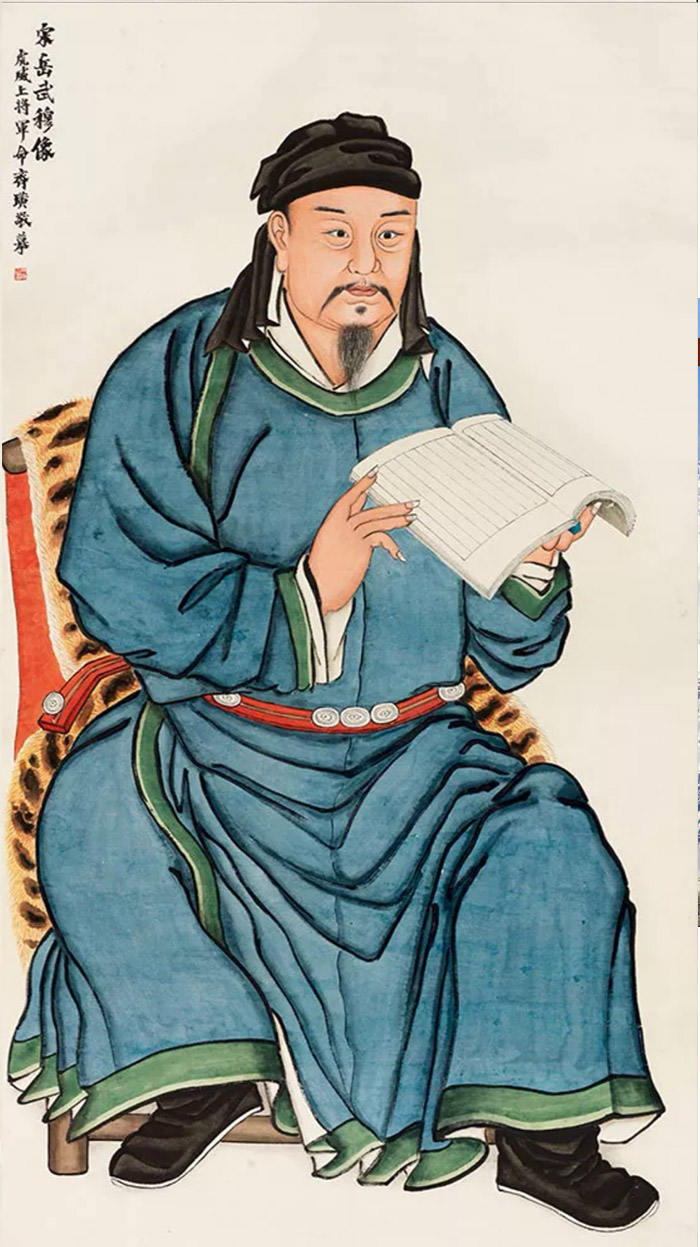 宋岳武穆像
虎威上将軍命齊璜敬摹